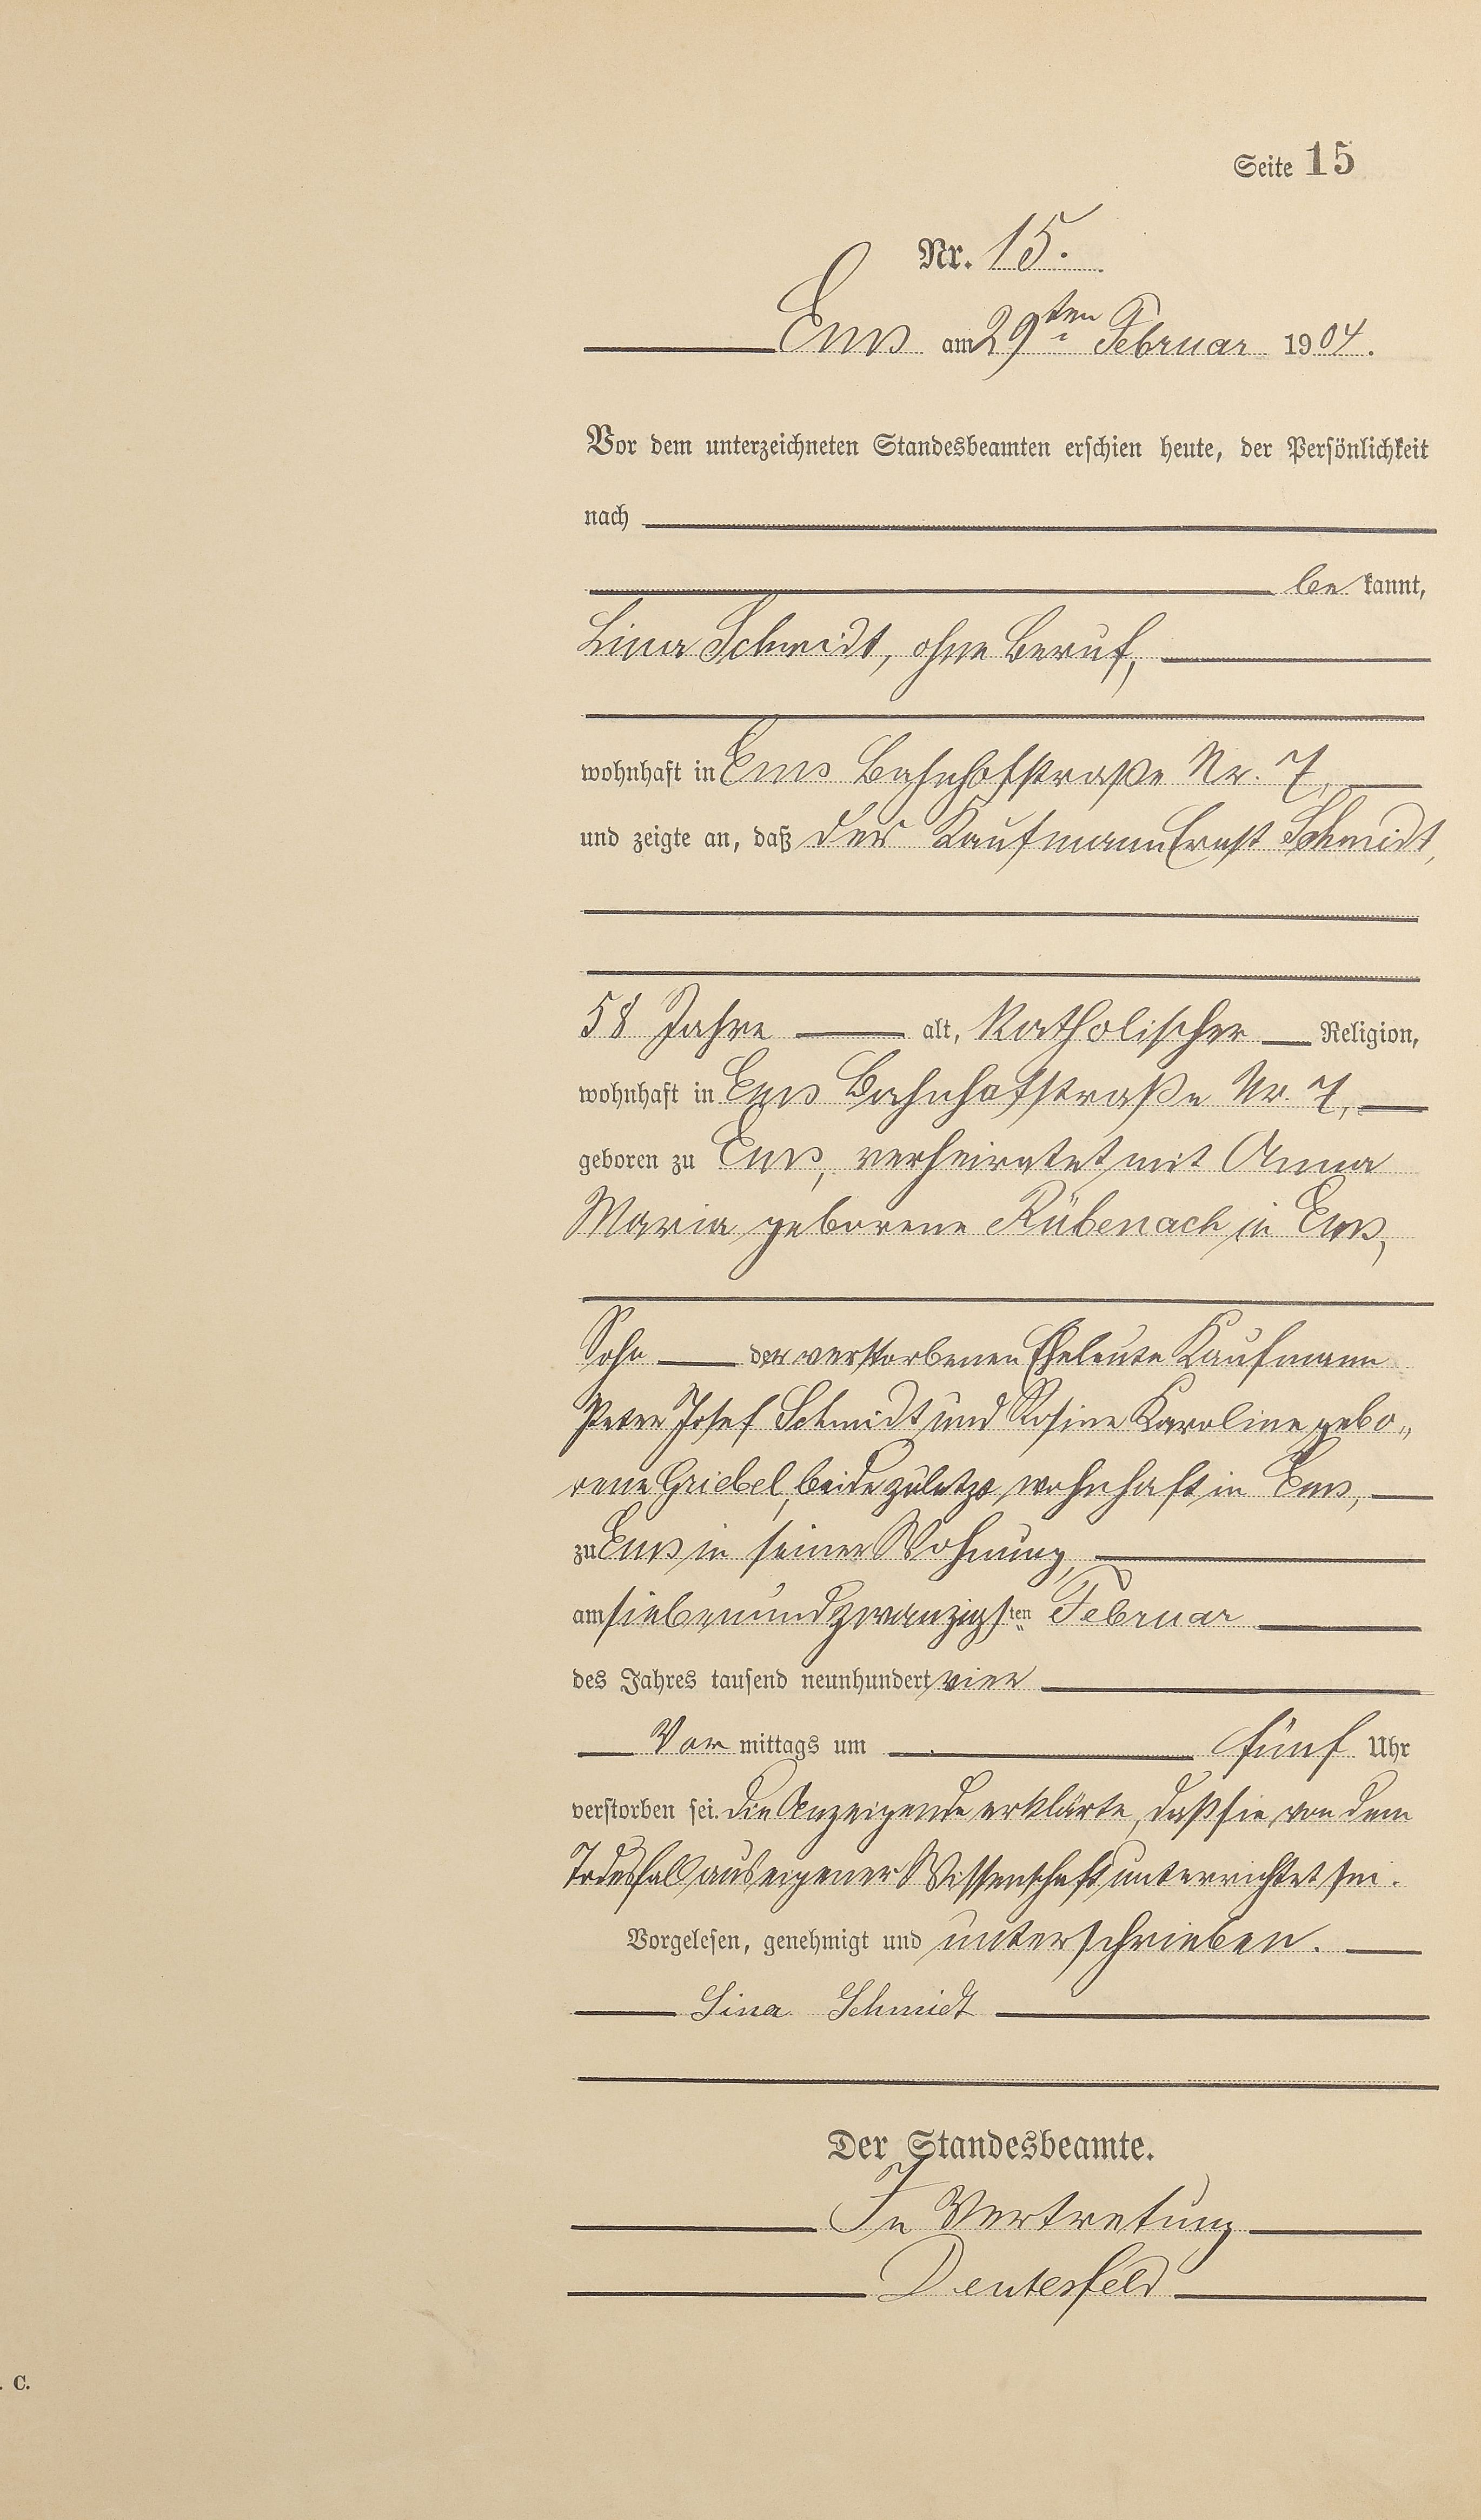 Seite 15
Nr. 15.
Ems am 29ten Februar 1904.
Vor dem unterzeichneten Standesbeamten erschien heute, der Persönlichkeit
nach
be kannt,
Lina Schmidt, ohne Beruf,
wohnhaft in Ems Bahnhofstraße Nr. 7,
und zeigte an, daß der Kaufmann Ernst Schmidt,
58 Jahre alt, Katholischer Religion,
wohnhaft in Ems Bahnhofstraße Nr. 7,
geboren zu Ems, verheiratet mit Anna
Maria geborene Rübenach in Ems,
Sohn der verstorbenen Eheleute Kaufmann
Peter Josef Schmidt und Rosine Karoline gebo„
rene Griebel, beide zuletzt wohnhaft in Ems,
zu Ems in seiner Wohnung,
am siebenundzwanzigsten Februar
des Jahres tausend neunhundert vier
Vor mittags um fünf Uhr
verstorben sei. Die Anzeigende erklärte, daß sie von dem
Todesfall aus eigener Wissenschaft unterrichtet sei.
Vorgelesen, genehmigt und unterschrieben.
Lina Schmidt
Der Standesbeamte.
In Vertretung
Deutesfeld
. C.